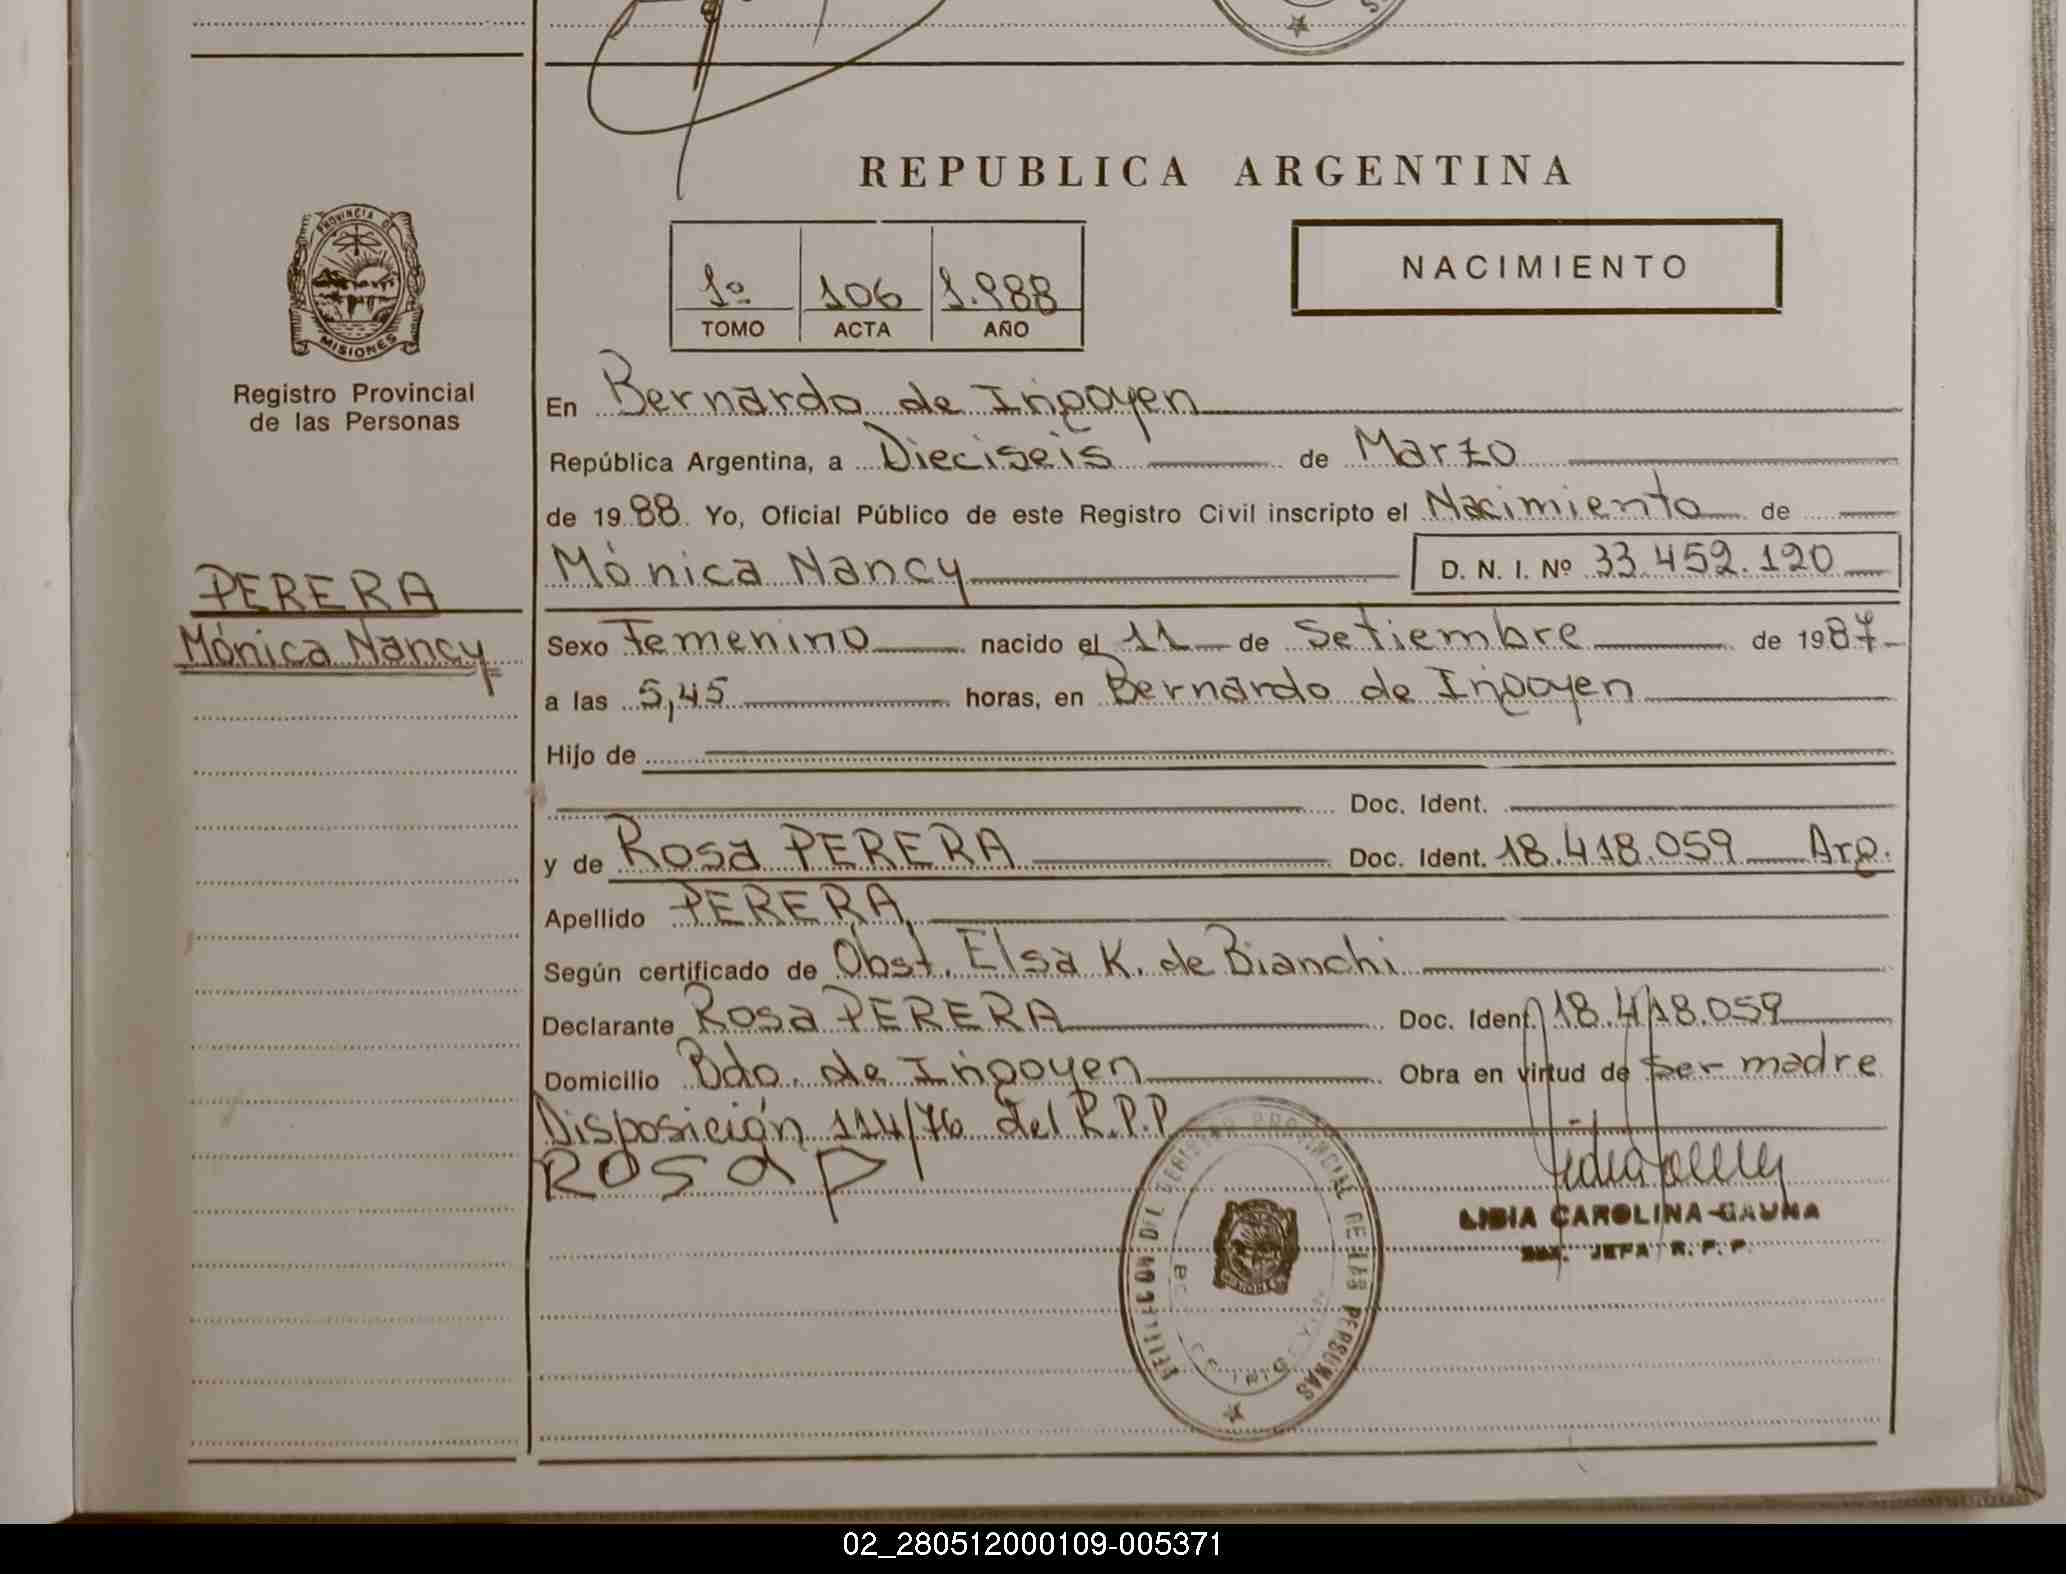 REPUBLICA ARGENTINA
PROVINCIA DE
MISIONES
Registro Provincial
de las Personas
NACIMIENTO
1º 106 1.988
TOMO ACTA AÑO
En Bernardo de Irigoyen
República Argentina, a Dieciseis de Marzo
de 19 88 Yo, Oficial Público de este Registro Civil inscripto el Nacimiento de
Mónica Nancy D. N. I. Nº 33.459.120
PERERA
Mónica Nancy
Sexo Femenino nacido el 11 de Setiembre de 1987
a las 5,45 horas, en Bernardo de Irigoyen
Hijo de
Doc. Ident.
y de Rosa PERERA Doc. Ident. 18.418.059 Arg.
Apellido PERERA
Según certificado de Obst. Elsa K. de Bianchi
Declarante Rosa PERERA Doc. Ident. 18.418.059
Domicilio Bdo. de Irigoyen Obra en virtud de ser madre
Disposición 114/76 del R.P.P.
Rosa P
LIDIA CAROLINA GAUNA
JEFA R. P. P.
REGISTRO PROVINCIAL DE LAS PERSONAS
02_280512000109-005371